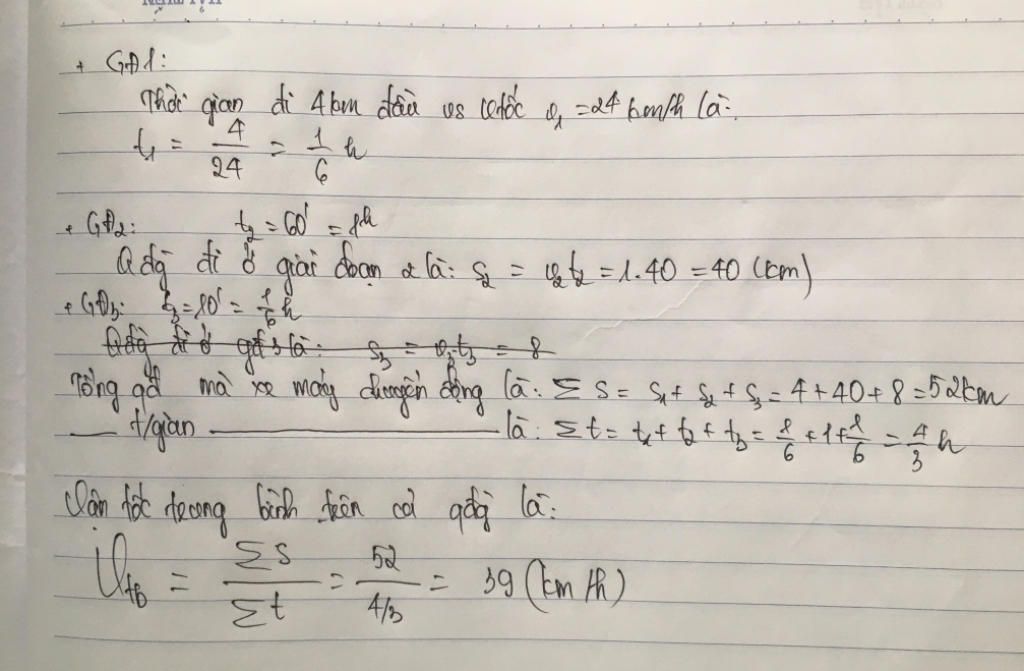 + GĐ1:
Thời gian đi 4km đầu vs v.tốc v₁ = 24 km/h là:
t₁ = 4/24 = 1/6 h
+ GĐ2: t₂ = 60' = 1h
Q đg đi ở giai đoạn 2 là: s₂ = v₂t₂ = 1.40 = 40 (km)
+ GĐ3: t₃ = 10' = 1/6 h
Q đg đi ở gđ 3 là: s₃ = v₃.t₃ = 8
Tổng qđ mà xe máy chuyển động là: Σ s = s₁ + s₂ + s₃ = 4 + 40 + 8 = 52km
___ t/gian ___ là: Σ t = t₁ + t₂ + t₃ = 1/6 + 1 + 1/6 = 4/3 h
Vận tốc trung bình trên cả qđg là:
Vtb = ΣS/Σt = 52/4/3 = 39 (km/h)